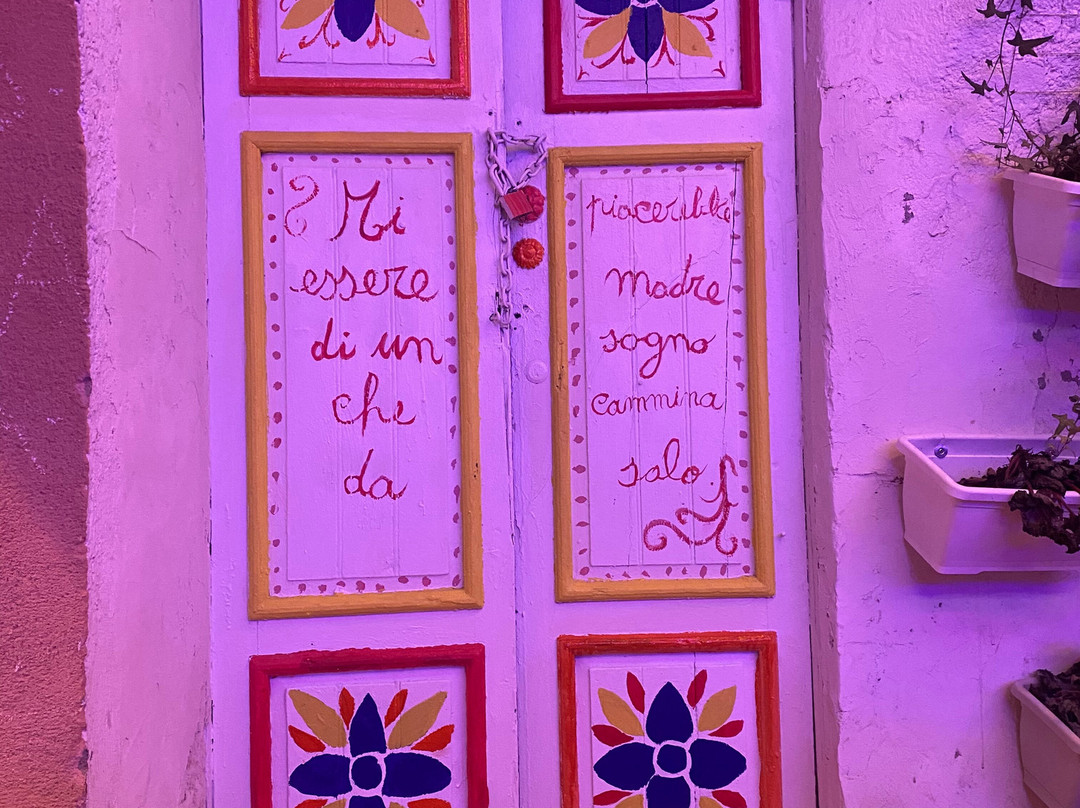 Mi piacerebbe
essere madre
di un sogno
che cammina
da solo.